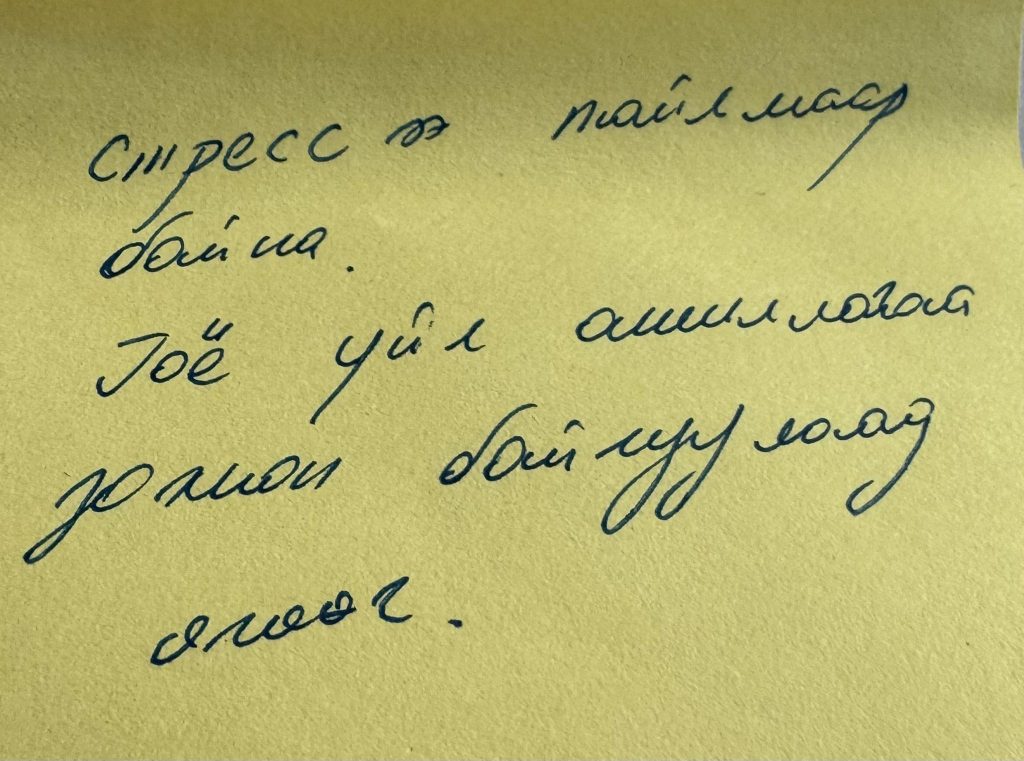 Стрессээ тайлмаар
байна.
Гоё үйл ажиллагаа
зохион байгуулаад
өгөөч.